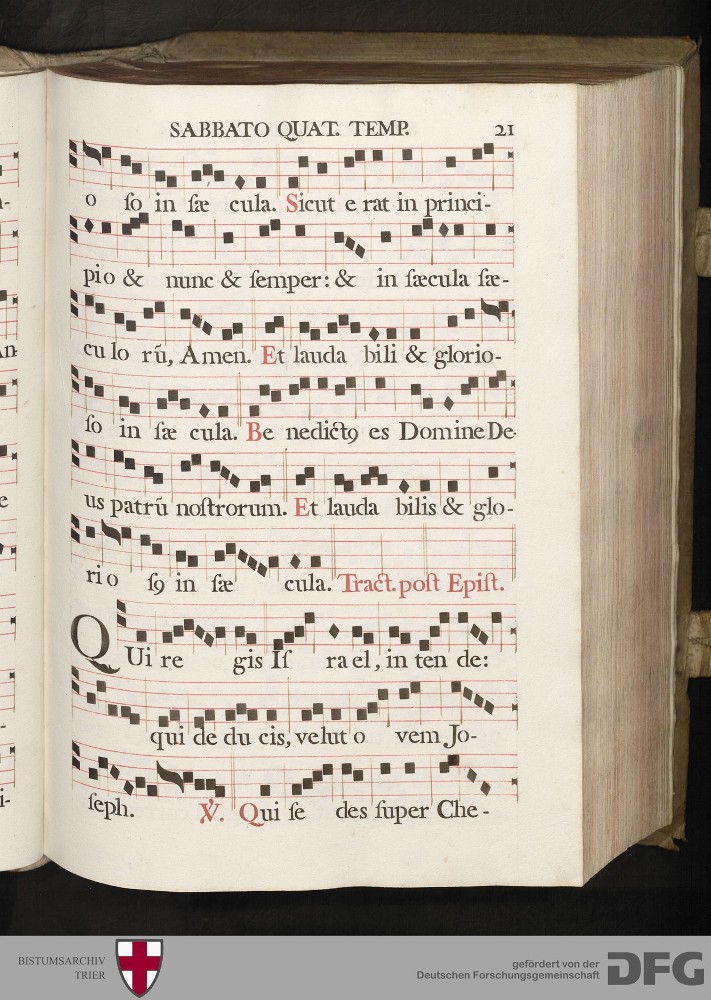 SABBATO QUAT. TEMP. 21
o ſo in ſæ cula. Sicut e rat in princi-
pio & nunc & ſemper: & in ſæcula ſæ-
cu lo rū, Amen. Et lauda bili & glorio-
ſo in ſæ cula. Be nedictꝯ es Domine De-
us patrū noſtrorum. Et lauda bilis & glo-
ri o ſꝯ in ſæ cula. Tract. poſt Epiſt.
QUi re gis Iſ ra el, in ten de:
qui de du cis, velut o vem Jo-
ſeph. ℣. Qui ſe des ſuper Che-
BISTUMSARCHIV
TRIER
gefördert von der
Deutschen Forschungsgemeinschaft
DFG